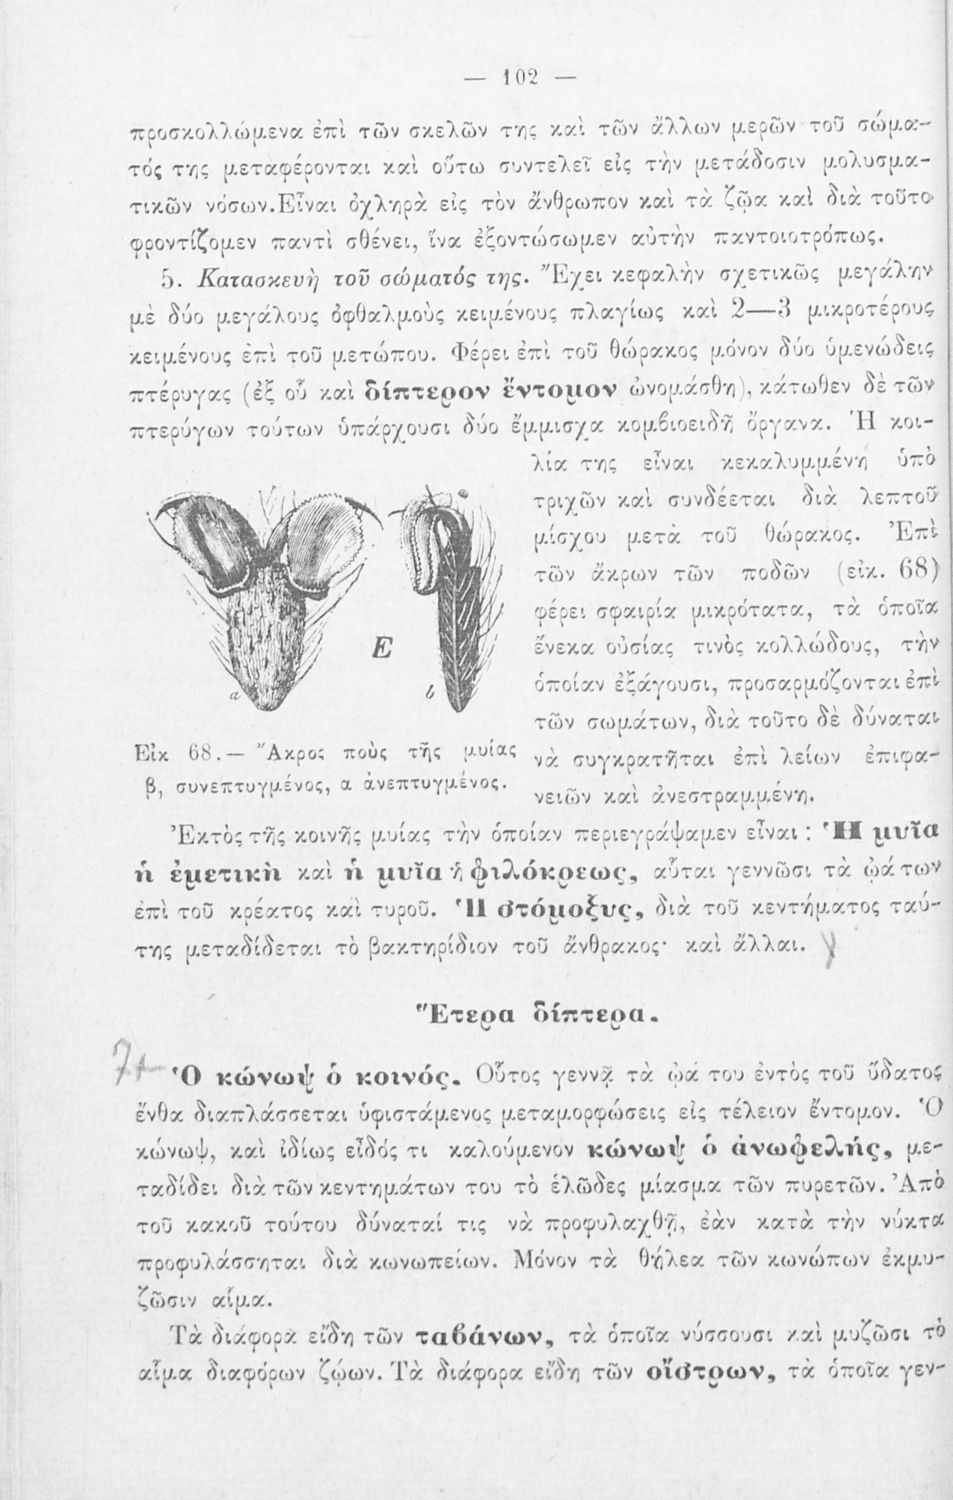 — 102 —
προσκολλώμενα ἐπὶ τῶν σκελῶν της καὶ τῶν ἄλλων μερῶν τοῦ σώμα-
τός της μεταφέρονται καὶ οὕτω συντελεῖ εἰς τὴν μετάδοσιν μολυσμα-
τικῶν νόσων. Εἶναι ὀχληρὰ εἰς τὸν ἄνθρωπον καὶ τὰ ζῷα καὶ διὰ τοῦτο
φροντίζομεν παντὶ σθένει, ἵνα ἐξοντώσωμεν αὐτὴν παντοιοτρόπως.
5. Κατασκευὴ τοῦ σώματός της. Ἔχει κεφαλὴν σχετικῶς μεγάλην
μὲ δύο μεγάλους ὀφθαλμοὺς κειμένους πλαγίως καὶ 2—3 μικροτέρους
κειμένους ἐπὶ τοῦ μετώπου. Φέρει ἐπὶ τοῦ θώρακος μόνον δύο ὑμενώδεις
πτέρυγας (ἐξ οὗ καὶ δίπτερον ἔντομον ὠνομάσθη), κάτωθεν δὲ τῶν
πτερύγων τούτων ὑπάρχουσι δύο ἔμμισχα κομβιοειδῆ ὄργανα. Ἡ κοι-
λία της εἶναι κεκαλυμμένη ὑπὸ
τριχῶν καὶ συνδέεται διὰ λεπτοῦ
μίσχου μετὰ τοῦ θώρακος. Ἐπὶ
τῶν ἄκρων τῶν ποδῶν (εἰκ. 68)
φέρει σφαιρία μικρότατα, τὰ ὁποῖα
ἕνεκα οὐσίας τινὸς κολλώδους, τὴν
ὁποίαν ἐξάγουσι, προσαρμόζονται ἐπὶ
τῶν σωμάτων, διὰ τοῦτο δὲ δύναται
νὰ συγκρατῆται ἐπὶ λείων ἐπιφα-
νειῶν καὶ ἀνεστραμμένη.
E
a
b
Εἰκ 68.— Ἄκρος ποὺς τῆς μυίας
β, συνεπτυγμένος, α ἀνεπτυγμένος.
Ἐκτὸς τῆς κοινῆς μυίας τὴν ὁποίαν περιεγράψαμεν εἶναι : Ἡ μυῖα
ἡ ἐμετικὴ καὶ ἡ μυῖα ἡ φιλόκρεως, αὗται γεννῶσι τὰ ὠά των
ἐπὶ τοῦ κρέατος καὶ τυροῦ. Ἡ στόμοξυς, διὰ τοῦ κεντήματος ταύ-
της μεταδίδεται τὸ βακτηρίδιον τοῦ ἄνθρακος· καὶ ἄλλαι.
Ἕτερα δίπτερα.
Ὁ κώνωψ ὁ κοινός. Οὗτος γεννᾷ τὰ ᾠά του ἐντὸς τοῦ ὕδατος
ἔνθα διαπλάσσεται ὑφιστάμενος μεταμορφώσεις εἰς τέλειον ἔντομον. Ὁ
κώνωψ, καὶ ἰδίως εἶδός τι καλούμενον κώνωψ ὁ ἀνωφελής, με-
ταδίδει διὰ τῶν κεντημάτων του τὸ ἑλῶδες μίασμα τῶν πυρετῶν. Ἀπὸ
τοῦ κακοῦ τούτου δύναταί τις νὰ προφυλαχθῇ, ἐὰν κατὰ τὴν νύκτα
προφυλάσσηται διὰ κωνωπείων. Μόνον τὰ θήλεα τῶν κωνώπων ἐκμυ-
ζῶσιν αἷμα.
Τὰ διάφορα εἴδη τῶν ταβάνων, τὰ ὁποῖα νύσσουσι καὶ μυζῶσι τὸ
αἷμα διαφόρων ζῴων. Τὰ διάφορα εἴδη τῶν οἴστρων, τὰ ὁποῖα γεν-